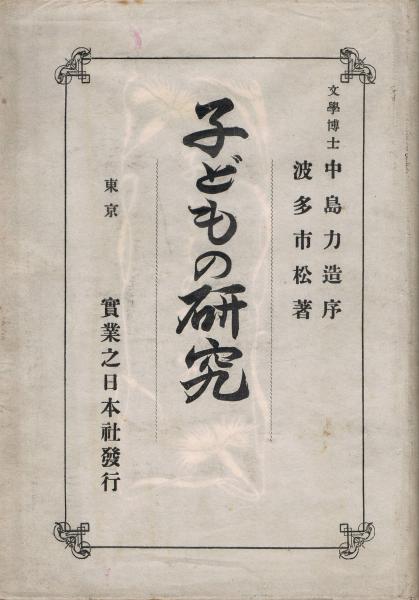 文學博士 中島力造序
波多市松著
子どもの研究
東京 實業之日本社發行